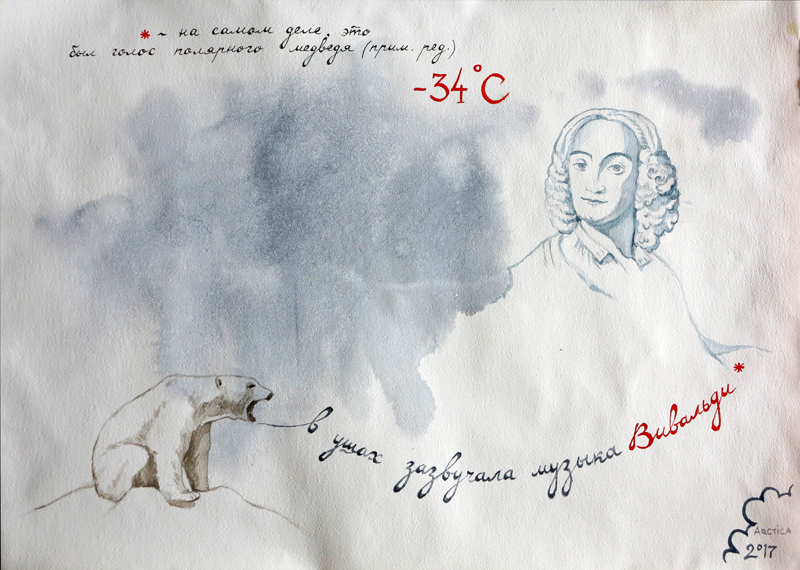 * - на самом деле, это
был голос полярного медведя (прим. ред.)
-34°C
в ушах зазвучала музыка Вивальди*
ARCTICA
2017